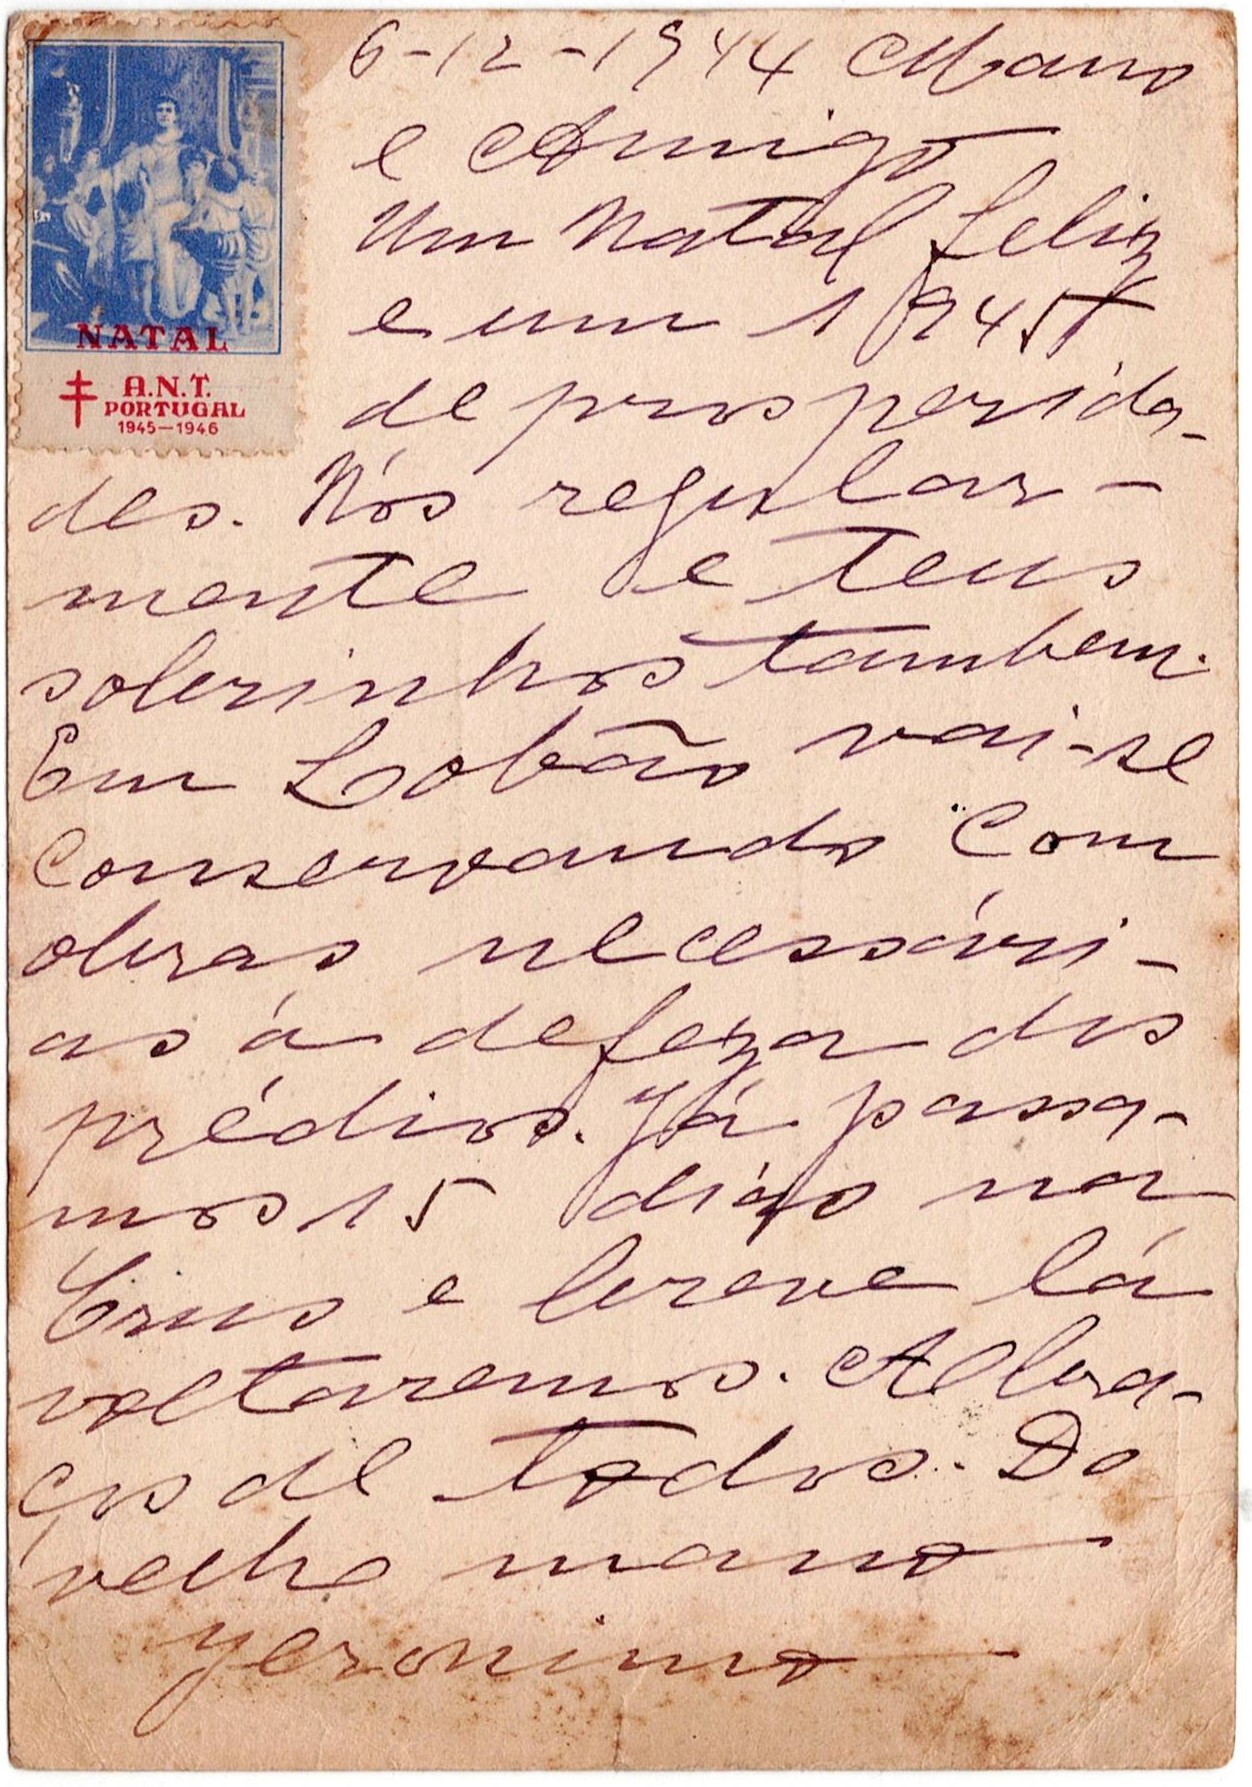 NATAL
A.N.T.
PORTUGAL
1945-1946
6-12-1944 Mano
e Amigo
Um Natal feliz
e um 1945
de prosperida-
des. Nós regular-
mente e teus
sobrinhos tambem.
Em Lobão vai-se
conservando com
obras necessári-
as á defeza dos
prédios. Já passa-
mos 15 dias na
Cruz e breve lá
voltaremos. Abra-
ços de todos. Do
velho mano
Jeronimo